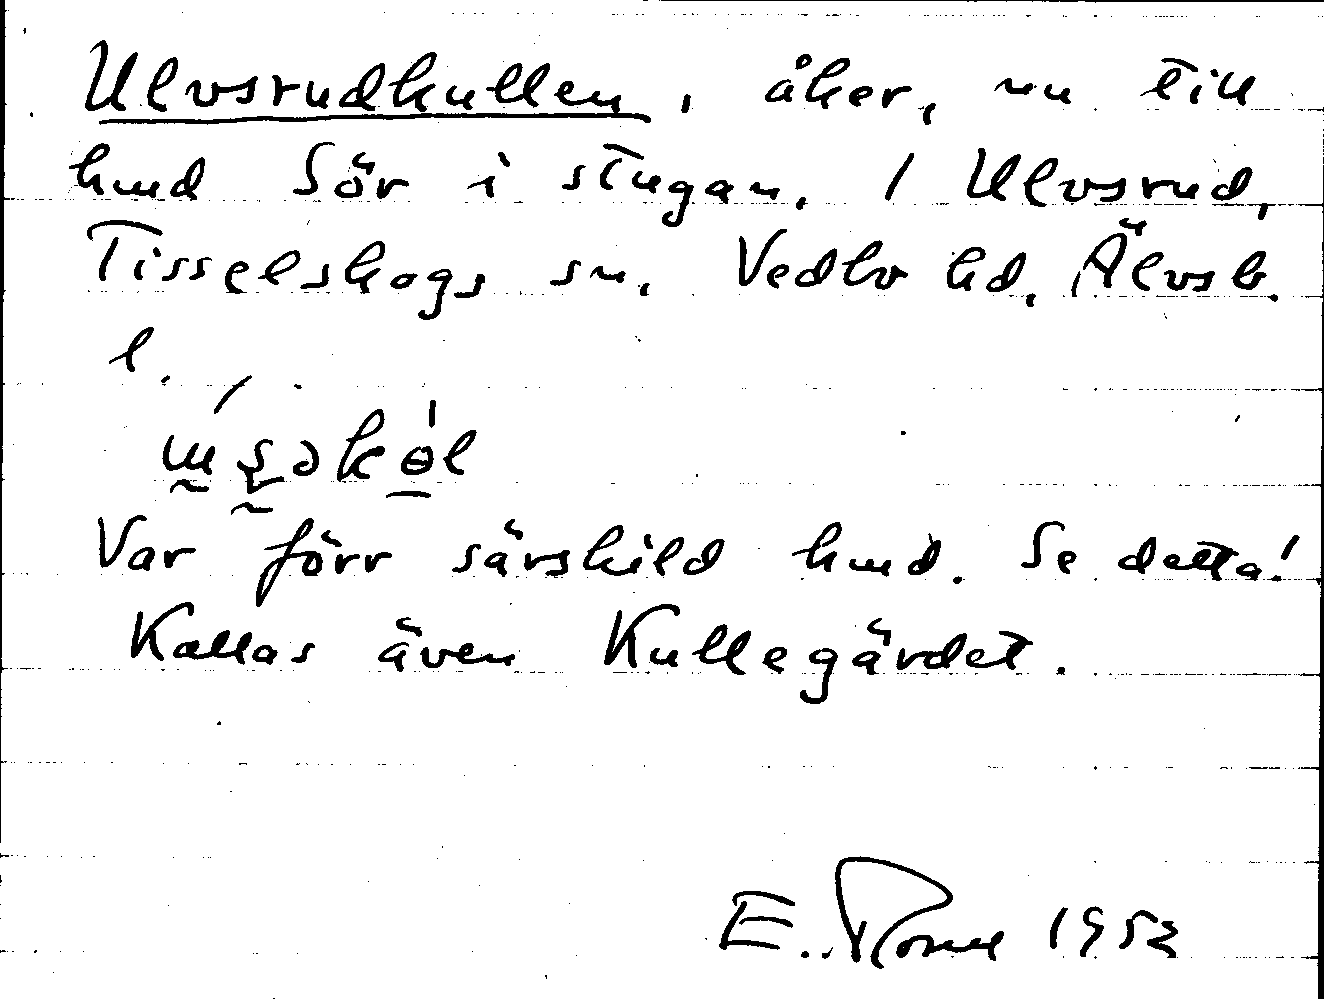 Ulvsrudkullen, åker, nu till
hmd Sör i stugan. / Ulvsrud,
Tisselskogs sn, Vedbo hd, Älvsb.
l.
Var förr särskild hmd. Se detta!
Kallas även Kullegärdet.
E. 1952